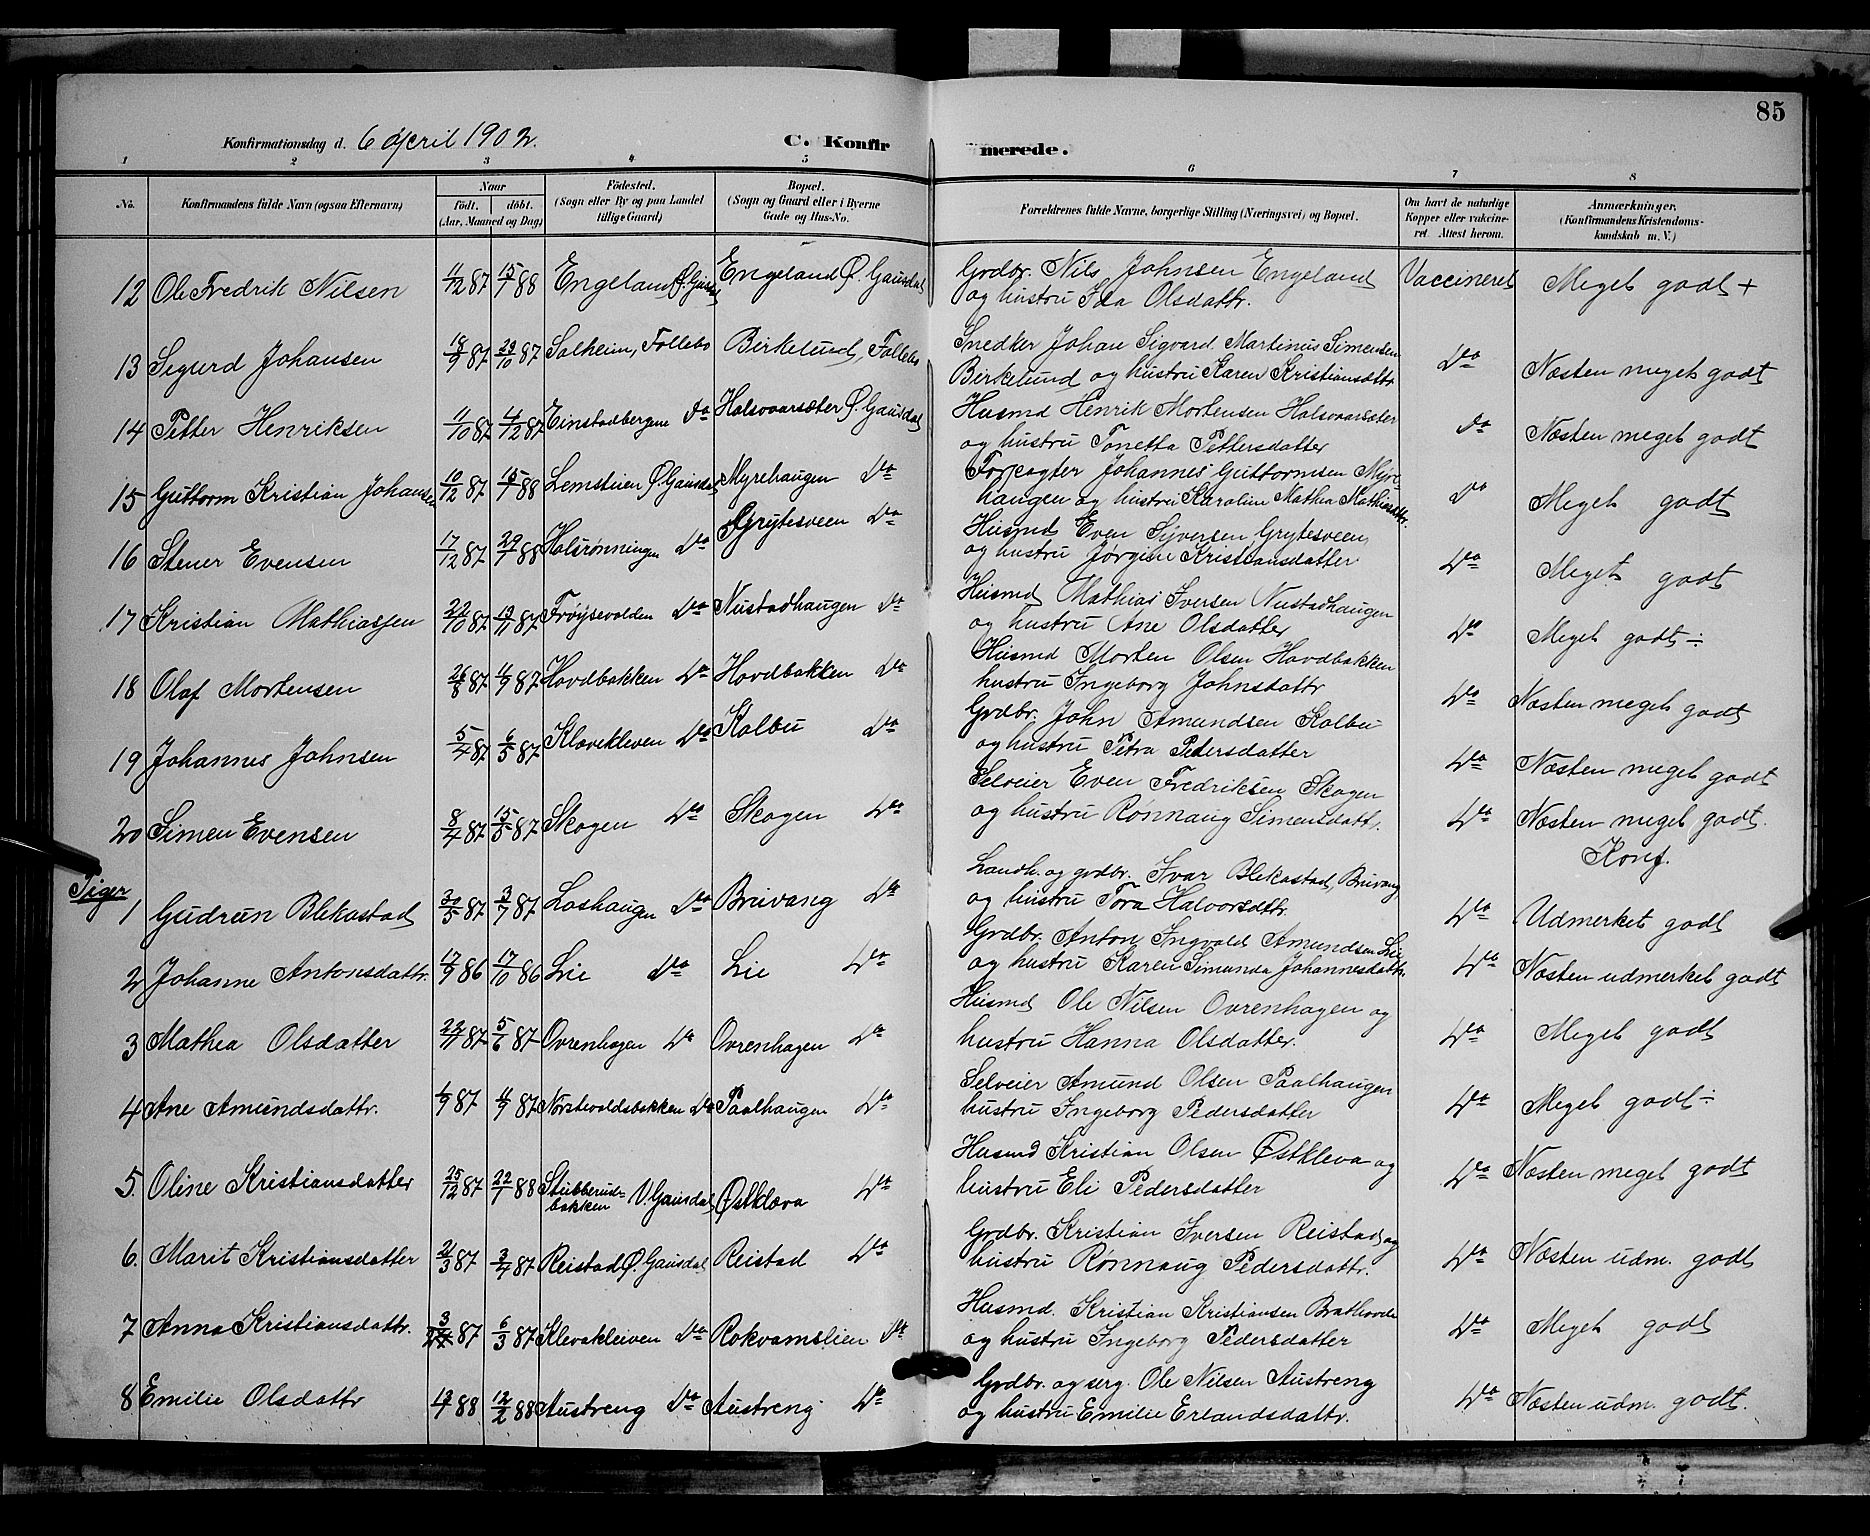 85
Konfirmationsdag d. 6 April 1902.
C. Konfirmerede.
1 2 3 4 5 6 7 8
No. Konfirmandens fulde Navn (ogsaa Efternavn) Naar født. døbt. (Aar, Maaned og Dag) Fødested. (Sogn eller By og paa Landet tillige Gaard) Bopæl. (Sogn og Gaard eller i Byerne Gade og Hus-No. Forældrenes fulde Navne, borgerlige Stilling (Næringsvei) og Bopæl. Om havt de naturlige Kopper eller vakcineret. Attest herom. Anmærkninger. (Konfirmandens Kristendomskundskab m. V.)
12 Ole Fredrik Nilsen 11/12 87 15/1 88 Engeland Ø. Gausd Engeland Ø. Gausdal Grdbr. Nils Johnsen Engeland Vaccineret Meget godt +
og hustru Ida Olsdattr.
13 Sigurd Johansen 18/9 87 29/10 87 Solheim, Follebo Birkelund, Follebo Snedker Johan Sigvard Martinus Simensen Do Næsten meget godt
Birkelund og hustru Karen Kristiansdttr
14 Petter Henriksen 11/10 87 4/12 87 Einstadbergene do Holsvaarsæter Ø. Gausdal Husmd Henrik Mortensen Holsvaarsæter do Næsten meget godt
og hustru Tonetta Pettersdatter
15 Guttorm Kristian Johansen 10/12 87 15/1 88 Lemstuen Ø. Gausdal Myrehaugen Do Forpagter Johannes Guttormsen Myre- do Meget godt
haugen og hustru Karoline Mathea Mathiasdtr.
16 Stener Evensen 17/12 87 29/1 88 Holsrønningen Do Grytesveen Do Husmd Even Syversen Grytesveen Do Meget godt
og hustru Jørgine Kristiansdatter
17 Kristian Mathiassen 22/10 87 13/11 87 Frøysevolden Do Nustadhaugen Do Husmd Mathias Iversen Nustadhaugen Do Meget godt ÷
og hustru Ane Olsdatter
18 Olaf Mortensen 26/8 87 11/9 87 Hovdbakken Do Hovdbakken Do Husmd Morten Olsen Hovdbakken Do Næsten meget godt
hustru Ingeborg Johnsdattr
19 Johannes Johnsen 5/4 87 6/5 87 Klævekleven Do Kolbu Do Grdbr. John Amundsen Kolbu Do Næsten meget godt
og hustru Petra Pedersdatter
20 Simen Evensen 8/4 87 15/5 87 Skogen Do Skogen Do Selveier Even Fredriksen Skogen Do Næsten meget godt.
og hustru Rønnaug Simensdattr. Konf.
Piger
1 Gudrun Blekastad 30/5 87 3/7 87 Loshaugen Do Bruvang Do Landh. og grdbr. Ivar Blekastad, Bruvang Do Udmerket godt
og hustru Tora Halvorsdttr.
2 Johanne Antonsdattr. 17/9 86 17/10 86 Lie Do Lie Do Grdbr. Anton Ingvald Amundsen Lie Do Næsten udmerket godt
og hustru Karen Simunda Johannesdattr.
3 Mathea Olsdatter 22/4 87 5/6 87 Ovrenhagen Do Ovrenhagen Do Husmd Ole Nilsen Ovrenhagen og Do Meget godt
hustru Hanna Olsdatter.
4 Ane Amundsdattr. 1/9 87 11/9 87 Norstevoldsbakken Do Paalhaugen Do Selveier Amund Olsen Paalhaugen Do Meget godt ÷
hustru Ingeborg Pedersdatter
5. Oline Kristiansdatter 25/12 87 22/1 88 Stubberudbakken V. Gausdal Østkleva Do Husmd Kristian Olsen Østkleva og Do Næsten meget godt
hustru Eli Pedersdatter
6. Marit Kristiansdatter 21/3 87 3/4 87 Reistad Ø. Gausdal Reistad Do Grdbr. Kristian Iversen Reistad og Do Næsten udm. godt
hustru Rønnaug Pedersdattr.
7 Anna Kristiansdattr. 87 6/3 87 Klevakleiven Do Rokvamslien Do Husmd. Kristian Kristiansen Brathovde Do Meget godt
og hustru Ingeborg Pedersdatter
8 Emilie Olsdattr 88 12/2 88 Austreng Do Austreng Do Grdbr. og serg. Ole Nilsen Austreng Do Næsten udm. godt.
og hustru Emilie Erlandsdattr.